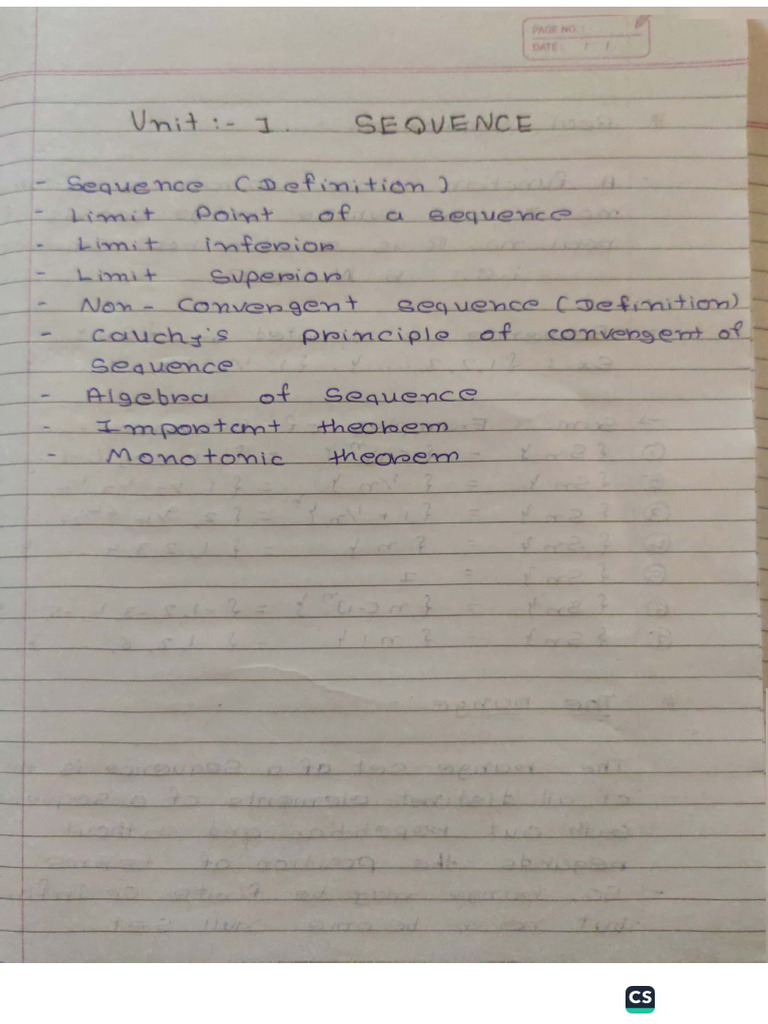 PAGE NO. :
DATE : / /
Unit :- I. SEQUENCE
- Sequence (Definition)
- Limit Point of a sequence
- Limit inferior
- Limit Superior
- Non - Convergent sequence (Definition)
- Cauchy's principle of convergent of
sequence
- Algebra of sequence
- Important theorem
- Monotonic theorem
CS